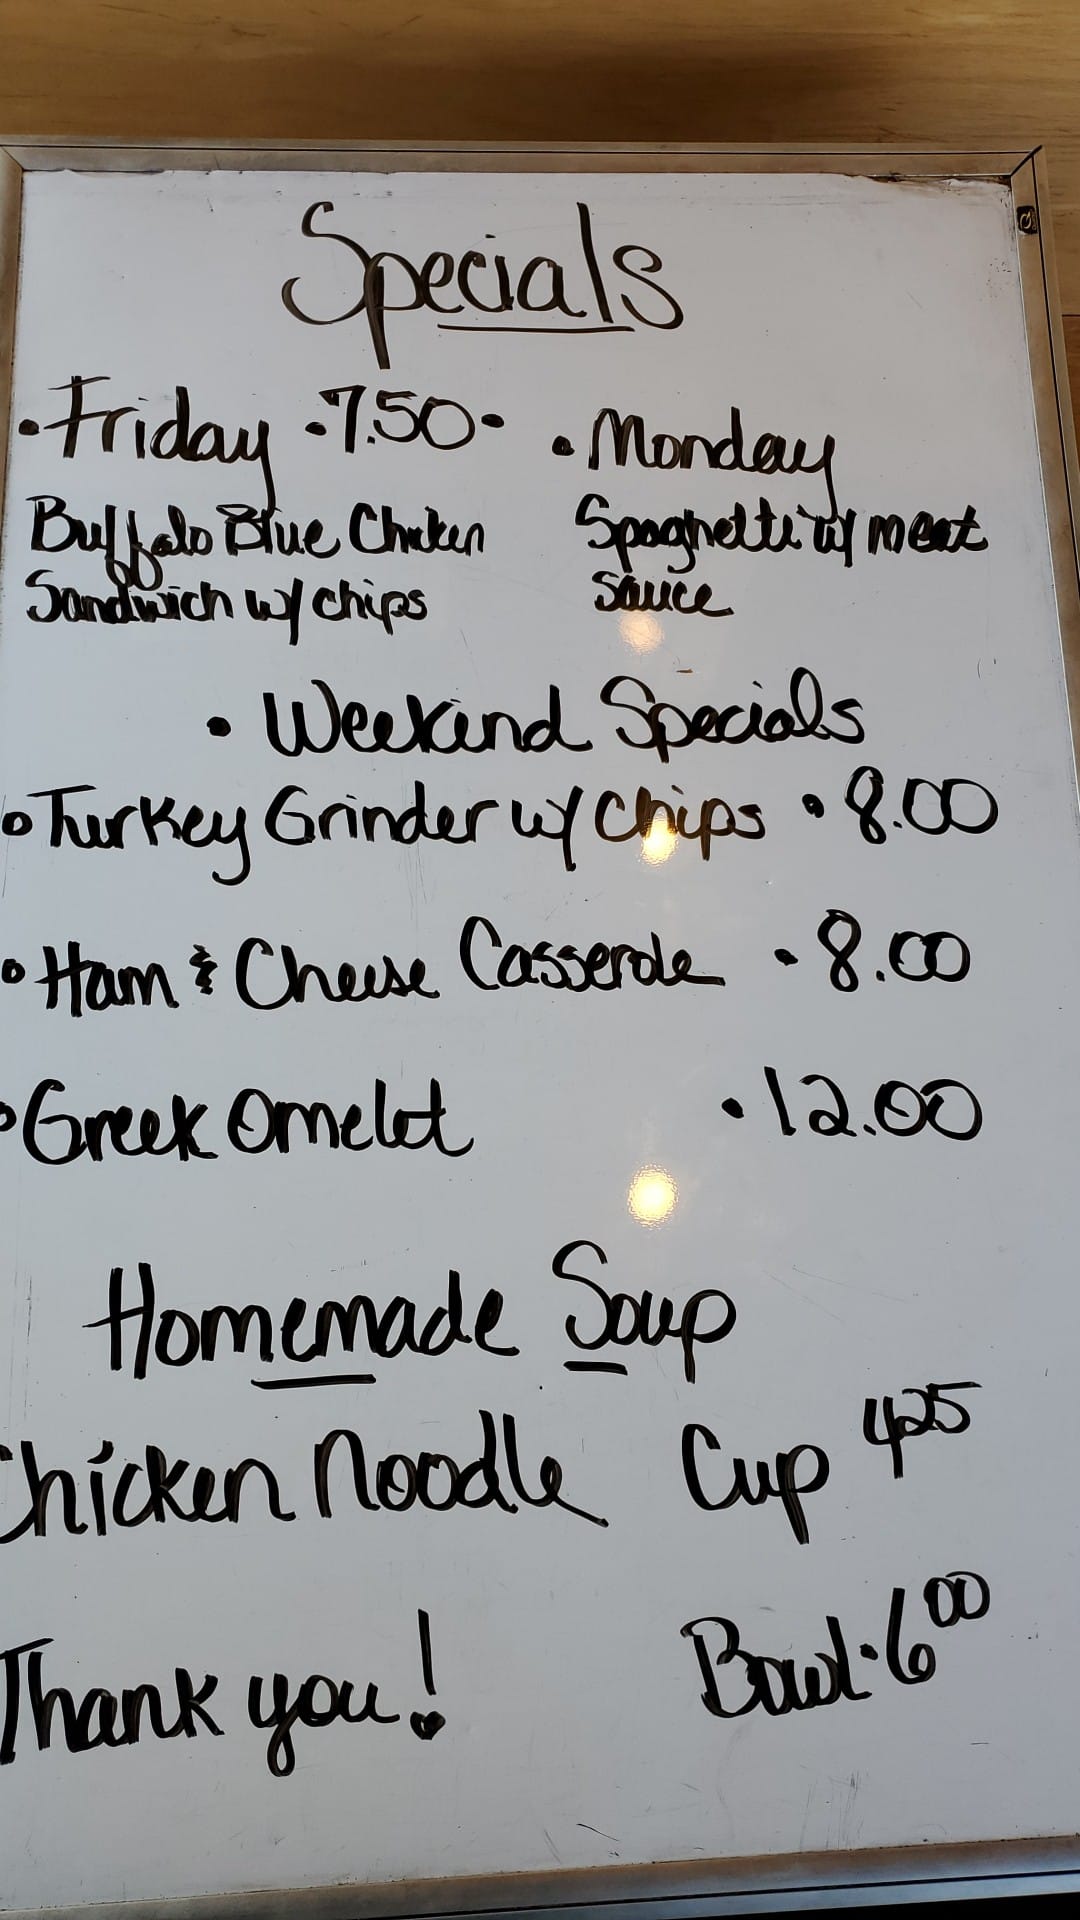 Specials
• Friday • 7.50 •
Buffalo Blue Chicken
Sandwich w/ chips
• Monday
Spaghetti w/ meat
sauce
• Weekend Specials
• Turkey Grinder w/ Chips • 8.00
• Ham & Cheese Casserole • 8.00
• Greek Omelet • 12.00
Homemade Soup
Chicken Noodle Cup 4.25
Bowl • 6.00
Thank you!